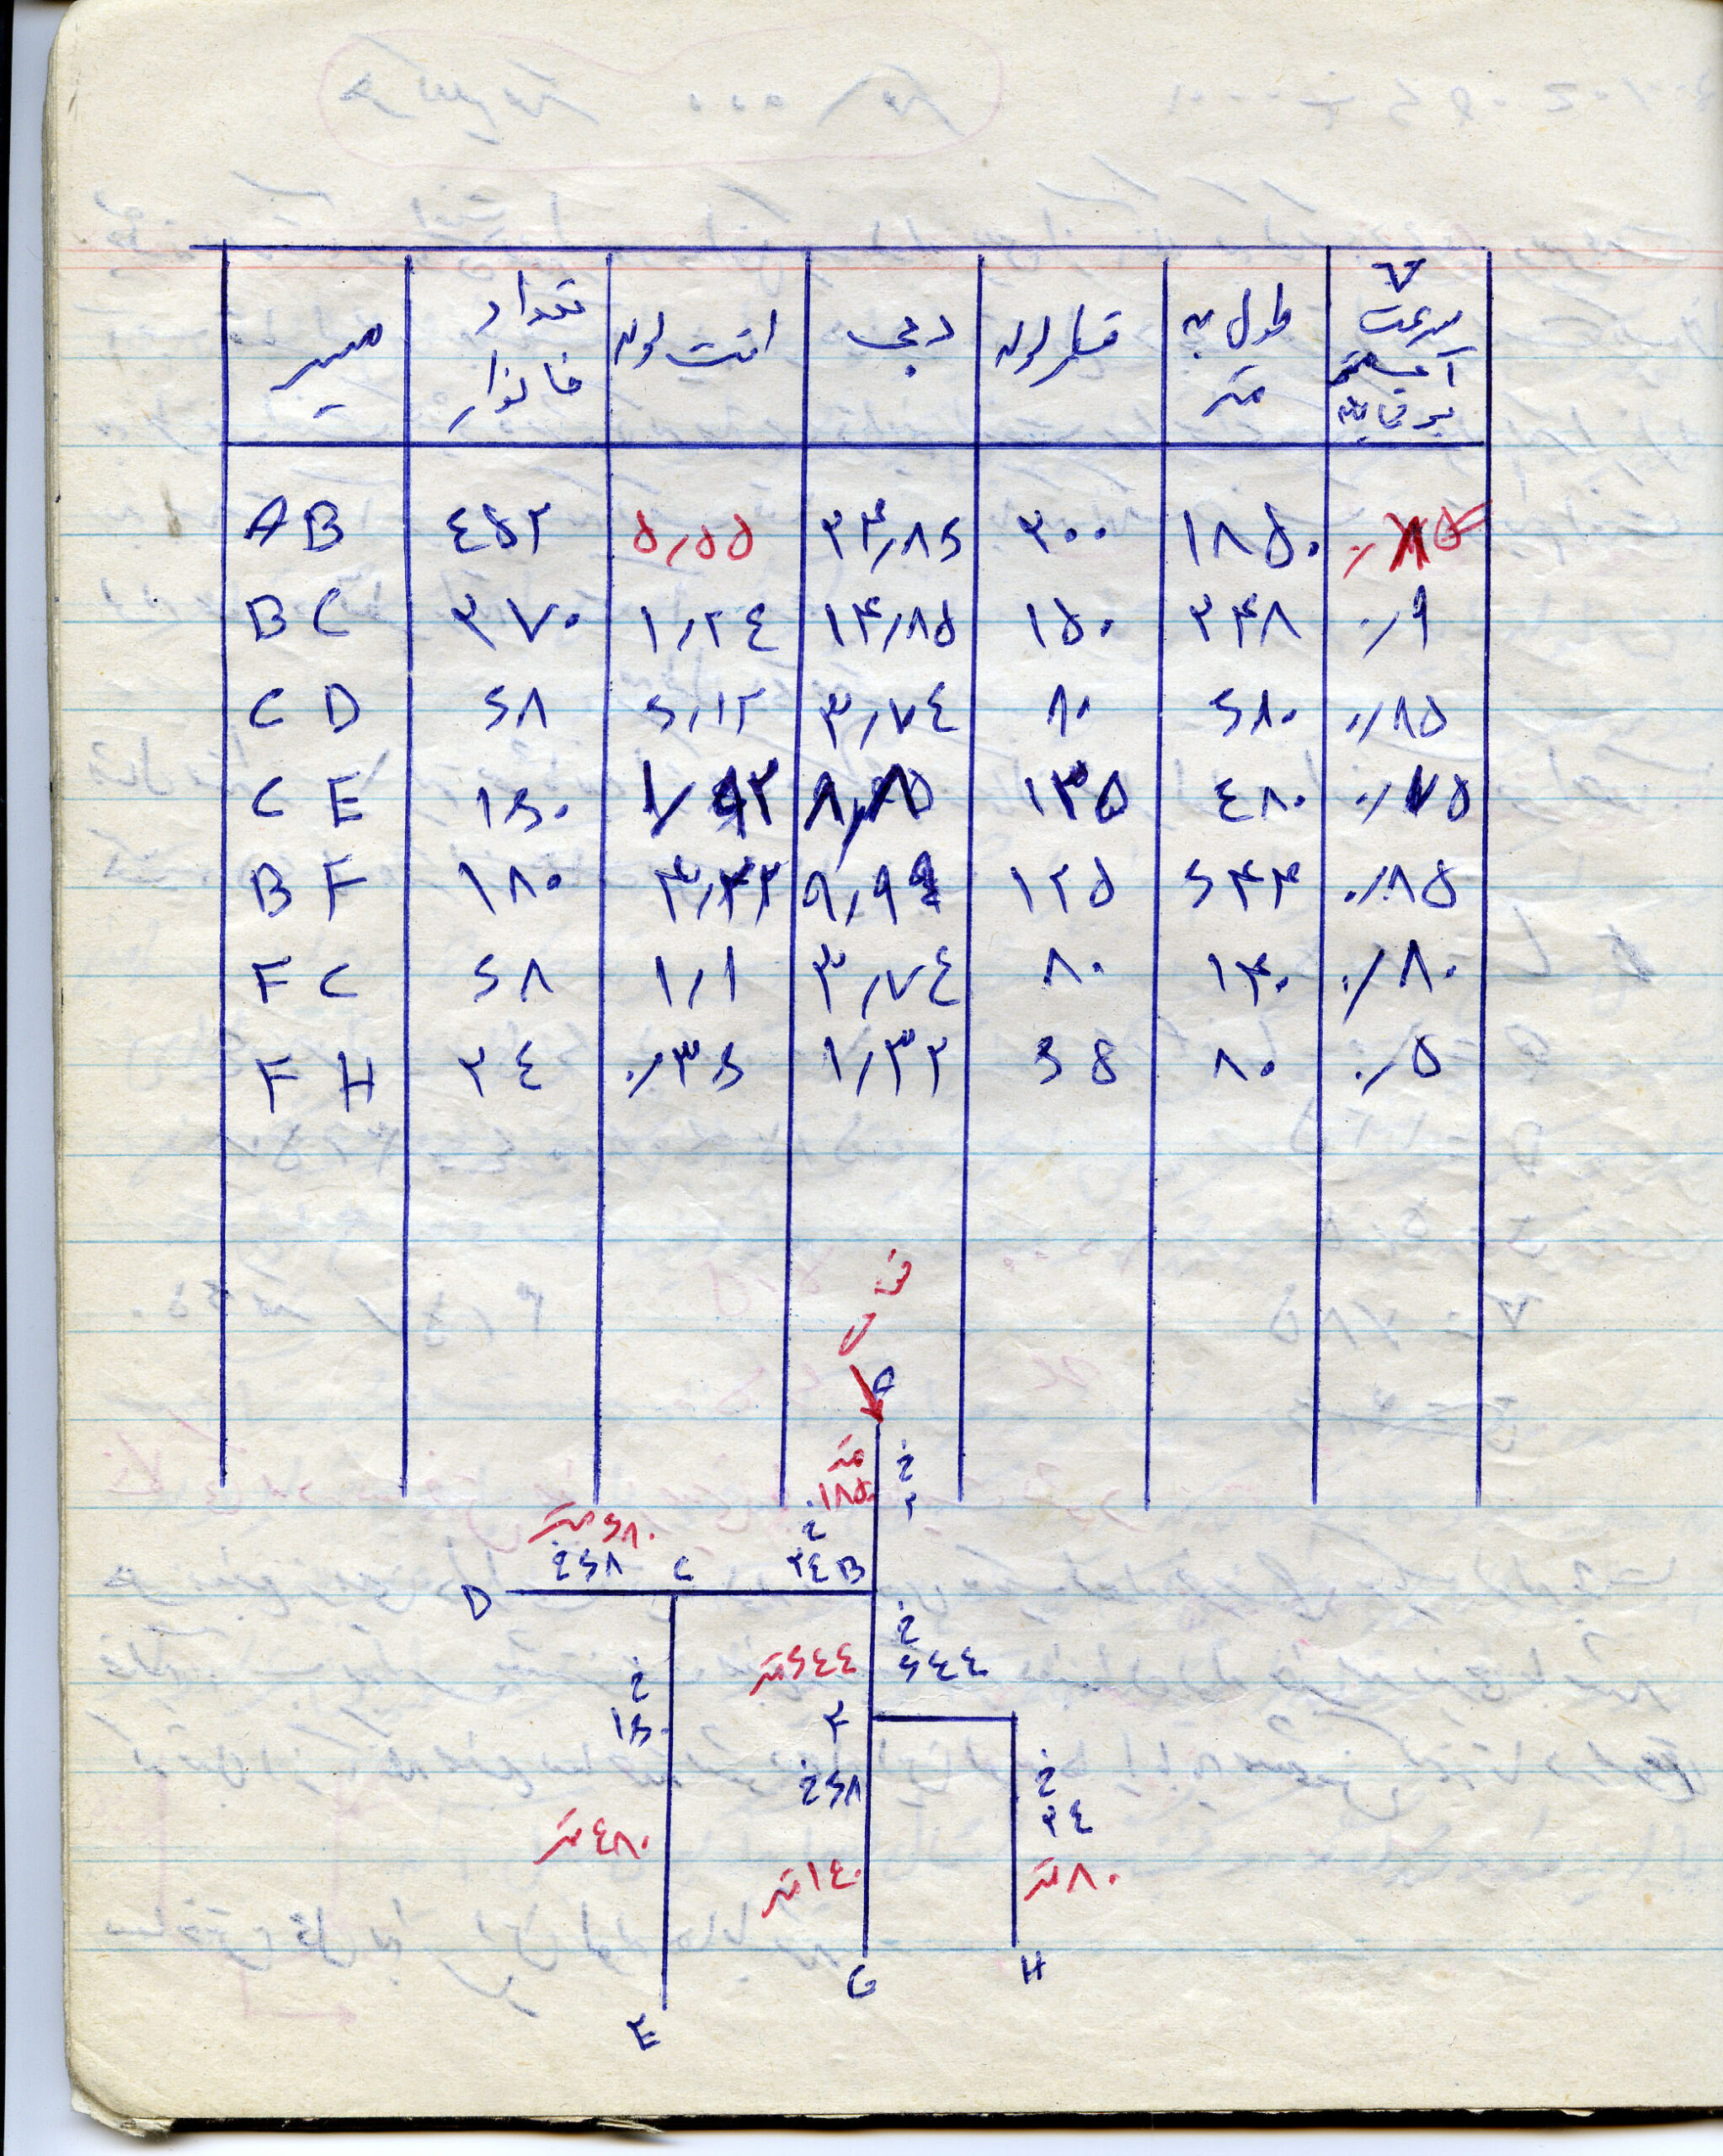 مسیر تعداد خانوار افت لوله دبی قطر لوله طول به متر V سرعت آب متر بر ثانیه
AB ٤۵۲ ۵٫۵۵ ۳۰۰ ۱۸۵۰
BC ۳۷۰ ۱٫۲٤ ۱۴٫۸۵ ۱۵۰ ۲۴۸ ۰٫۹
CD ۶۸ ۶٫۱۲ ۳٫۷٤ ۸۰ ۶۸۰ ۰٫۸۵
CE ۱۶۰ ۱٫۹۲ ۸٫۸۵ ۱۳۵ ٤۸۰ ۰٫۷۵
BF ۱۸۰ ۹٫۹۹ ۱۲۵ ۶۴۴ ۰٫۸۵
FC ۶۸ ۱٫۱ ۳٫۷٤ ۸۰ ۱۴۰ ۰٫۸۰
FH ۲٤ ۰٫۳۶ ۱٫۳۲ ۶۵ ۸۰ ۰٫۵
A
متر خ
۱۸۵۰ ۲
۶۸۰ متر خ
۶۸خ C ۲٤ B
D
خ
٦٤٤ متر ٦٤٤
خ
۱۶۰ F
۶۸خ خ
۲٤
٤۸۰ متر
۱٤۰ متر ۸۰ متر
G H
E